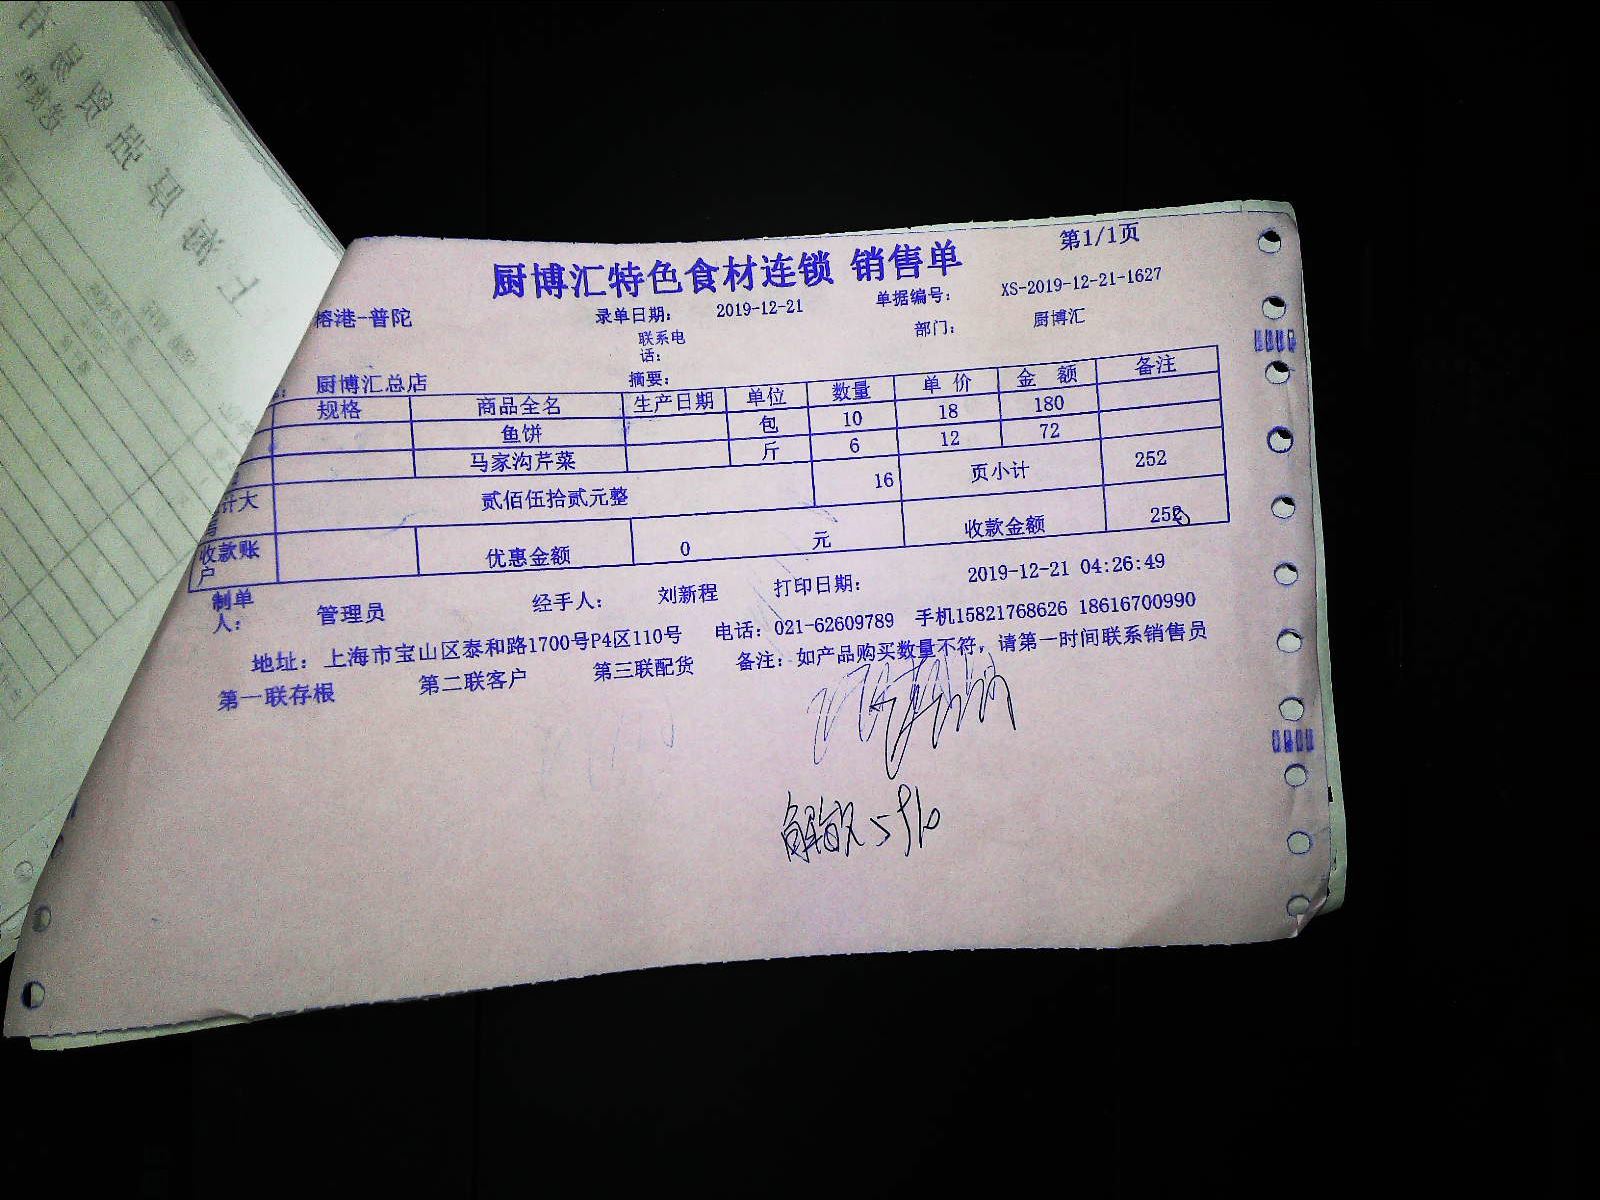 第1/1页
厨博汇特色食材连锁 销售单
榕港-普陀 录单日期: 2019-12-21 单据编号: XS-2019-12-21-1627
联系电话: 部门: 厨博汇
厨博汇总店 摘要:
规格 商品全名 生产日期 单位 数量 单价 金额 备注
鱼饼 包 10 18 180
马家沟芹菜 斤 6 12 72
计大写 贰佰伍拾贰元整 16 页小计 252
收款账户 优惠金额 0 元 收款金额 252
制单人: 管理员 经手人: 刘新程 打印日期: 2019-12-21 04:26:49
地址: 上海市宝山区泰和路1700号P4区110号 电话: 021-62609789 手机15821768626 18616700990
第一联存根 第二联客户 第三联配货 备注: 如产品购买数量不符, 请第一时间联系销售员